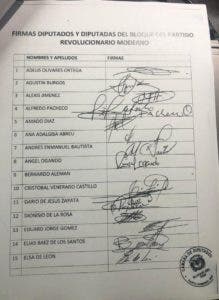 FIRMAS DIPUTADOS Y DIPUTADAS DEL BLOQUE DEL PARTIDO
REVOLUCIONARIO MODERNO
NOMBRES Y APELLIDOS FIRMAS
1 ADELIS OLIVARES ORTEGA
2 AGUSTIN BURGOS
3 ALEXIS JIMENEZ
4 ALFREDO PACHECO
5 AMADO DIAZ
6 ANA ADALGISA ABREU
7 ANDRES ENMANUEL BAUTISTA
8 ANGEL OGANDO
9 BERNARDO ALEMAN
10 CRISTOBAL VENERADO CASTILLO
11 DARIO DE JESUS ZAPATA
12 DIONISIO DE LA ROSA
13 EDUARD JORGE GOMEZ
14 ELIAS BAEZ DE LOS SANTOS
15 ELSA DE LEON
CAMARA DE DIPUTADOS